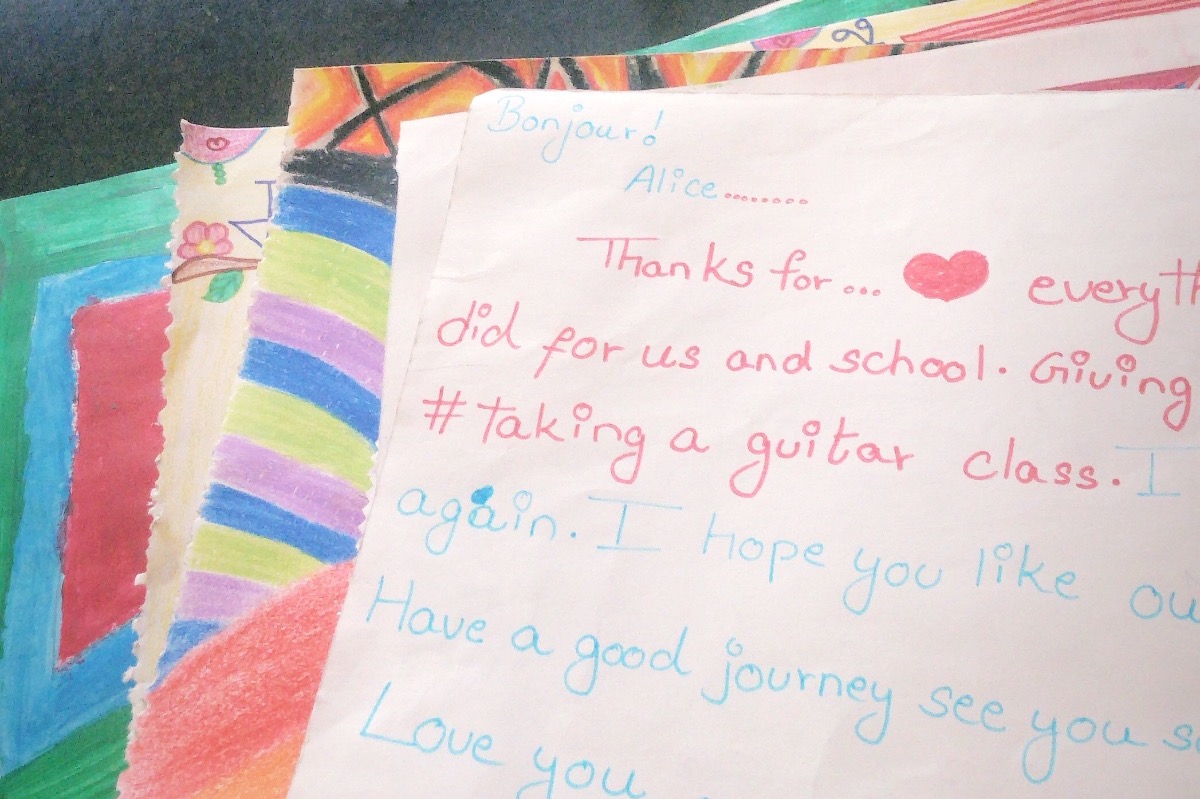 Bonjour!
Alice........
Thanks for... everyth
did for us and school. Giving
#taking a guitar class. I
again. I hope you like ou
Have a good journey see you s
Love you